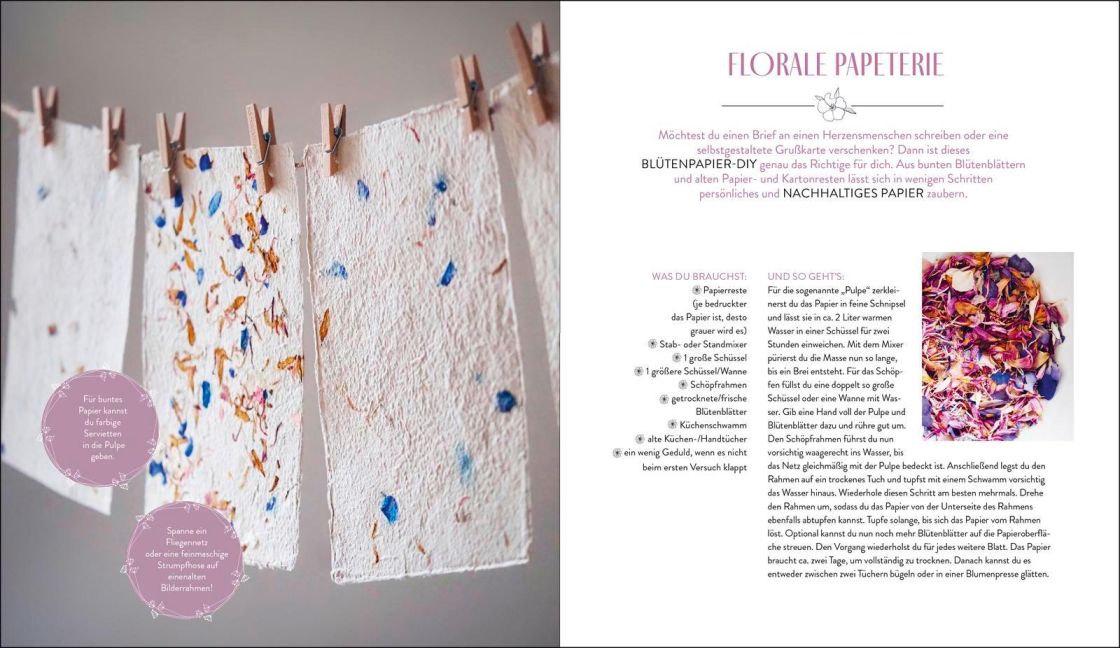 Für buntes
Papier kannst
du farbige
Servietten
in die Pulpe
geben.
Spanne ein
Fliegennetz
oder eine feinmaschige
Strumpfhose auf
einenalten
Bilderrahmen!
FLORALE PAPETERIE
Möchtest du einen Brief an einen Herzensmenschen schreiben oder eine
selbstgestaltete Grußkarte verschenken? Dann ist dieses
BLÜTENPAPIER-DIY genau das Richtige für dich. Aus bunten Blütenblättern
und alten Papier- und Kartonresten lässt sich in wenigen Schritten
persönliches und NACHHALTIGES PAPIER zaubern.
WAS DU BRAUCHST:
Papierreste
(je bedruckter
das Papier ist, desto
grauer wird es)
Stab- oder Standmixer
1 große Schüssel
1 größere Schüssel/Wanne
Schöpfrahmen
getrocknete/frische
Blütenblätter
Küchenschwamm
alte Küchen-/Handtücher
ein wenig Geduld, wenn es nicht
beim ersten Versuch klappt
UND SO GEHT'S:
Für die sogenannte „Pulpe" zerklei-
nerst du das Papier in feine Schnipsel
und lässt sie in ca. 2 Liter warmen
Wasser in einer Schüssel für zwei
Stunden einweichen. Mit dem Mixer
pürierst du die Masse nun so lange,
bis ein Brei entsteht. Für das Schöp-
fen füllst du eine doppelt so große
Schüssel oder eine Wanne mit Was-
ser. Gib eine Hand voll der Pulpe und
Blütenblätter dazu und rühre gut um.
Den Schöpfrahmen führst du nun
vorsichtig waagerecht ins Wasser, bis
das Netz gleichmäßig mit der Pulpe bedeckt ist. Anschließend legst du den
Rahmen auf ein trockenes Tuch und tupfst mit einem Schwamm vorsichtig
das Wasser hinaus. Wiederhole diesen Schritt am besten mehrmals. Drehe
den Rahmen um, sodass du das Papier von der Unterseite des Rahmens
ebenfalls abtupfen kannst. Tupfe solange, bis sich das Papier vom Rahmen
löst. Optional kannst du nun noch mehr Blütenblätter auf die Papieroberflä-
che streuen. Den Vorgang wiederholst du für jedes weitere Blatt. Das Papier
braucht ca. zwei Tage, um vollständig zu trocknen. Danach kannst du es
entweder zwischen zwei Tüchern bügeln oder in einer Blumenpresse glätten.